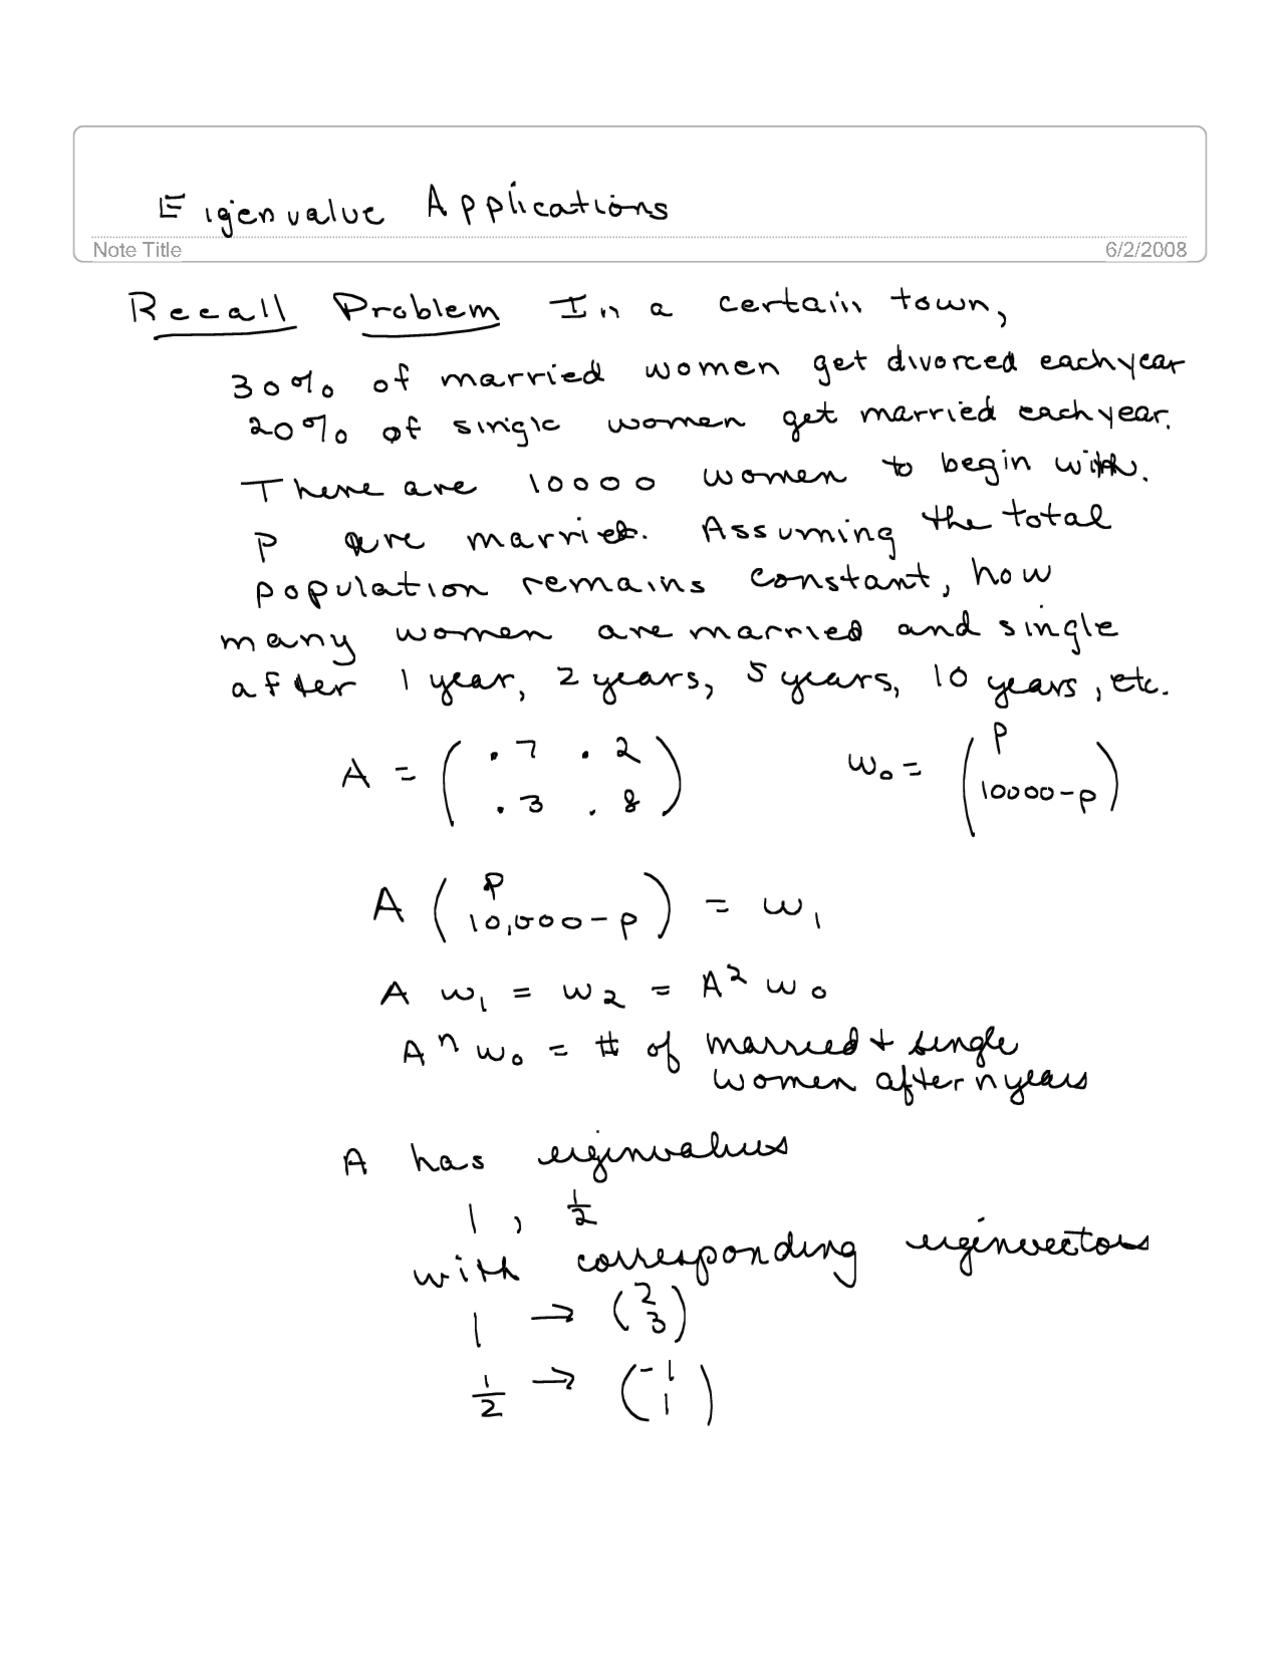 Eigenvalue Applications
Note Title 6/2/2008
Recall Problem In a certain town,
30% of married women get divorced each year
20% of single women get married each year.
There are 10000 women to begin with.
p are married. Assuming the total
population remains constant, how
many women are married and single
after 1 year, 2 years, 5 years, 10 years, etc.
A = ( .7 .2 w₀ = ( p
.3 .8 ) 10000-p )
A ( p
10,000-p ) = w₁
A w₁ = w₂ = A² w₀
Aⁿ w₀ = # of married + single
women after n years
A has eigenvalues
1 , 1/2
with corresponding eigenvectors
1 → ( 2
3 )
1/2 → ( -1
1 )